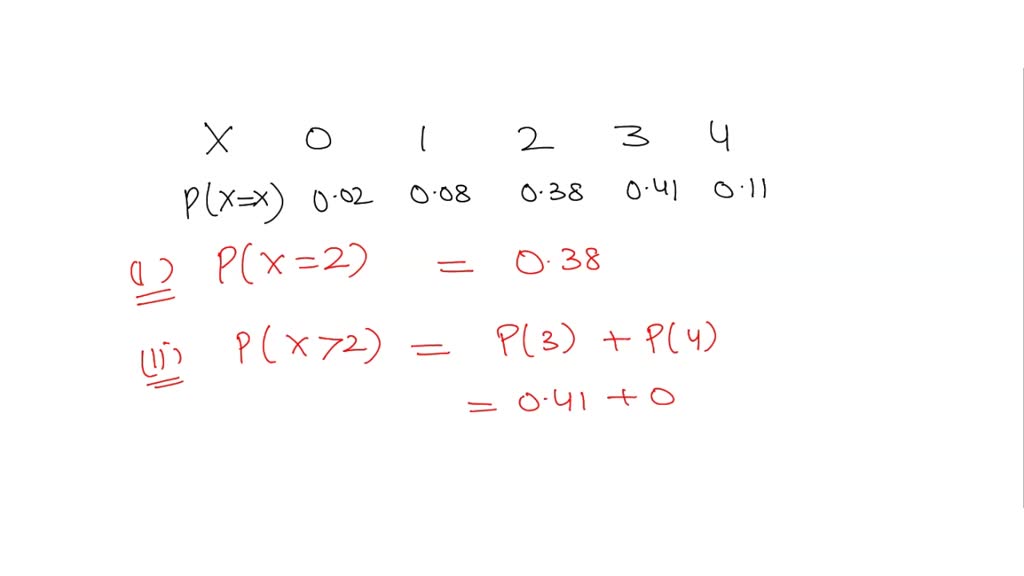 X 0 1 2 3 4
P(X=x) 0.02 0.08 0.38 0.41 0.11
(i) P(X=2) = 0.38
(ii) P(X>2) = P(3) + P(4)
= 0.41 + 0